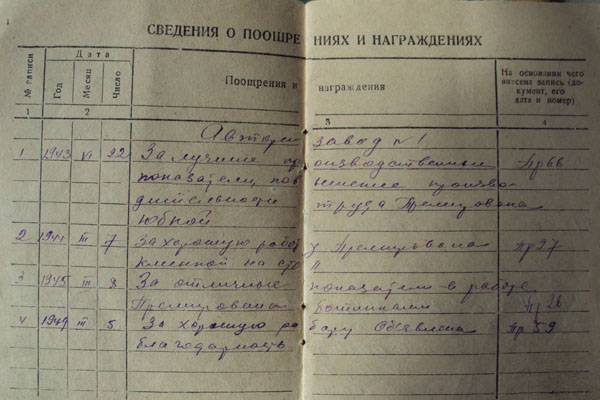 СВЕДЕНИЯ О ПООЩРЕНИЯХ И НАГРАЖДЕНИЯХ
№ записи
Дата
Год
Месяц
Число
Поощрения и награждения
На основании чего внесена запись (документ, его дата и номер)
1 2 3 4
завод №1
1 1943 VI 22 За лучшие производственные Пр66
показатели, повышение произво
дительности труда Премирована
юбкой
2 1944 III 7 За хорошую работу Премирована Пр27
3 1945 III 8 За отличные показатели в работе
Премирована ботинками Пр 26
4 1949 III 5 За хорошую работу Объявлена Пр 59
благодарность